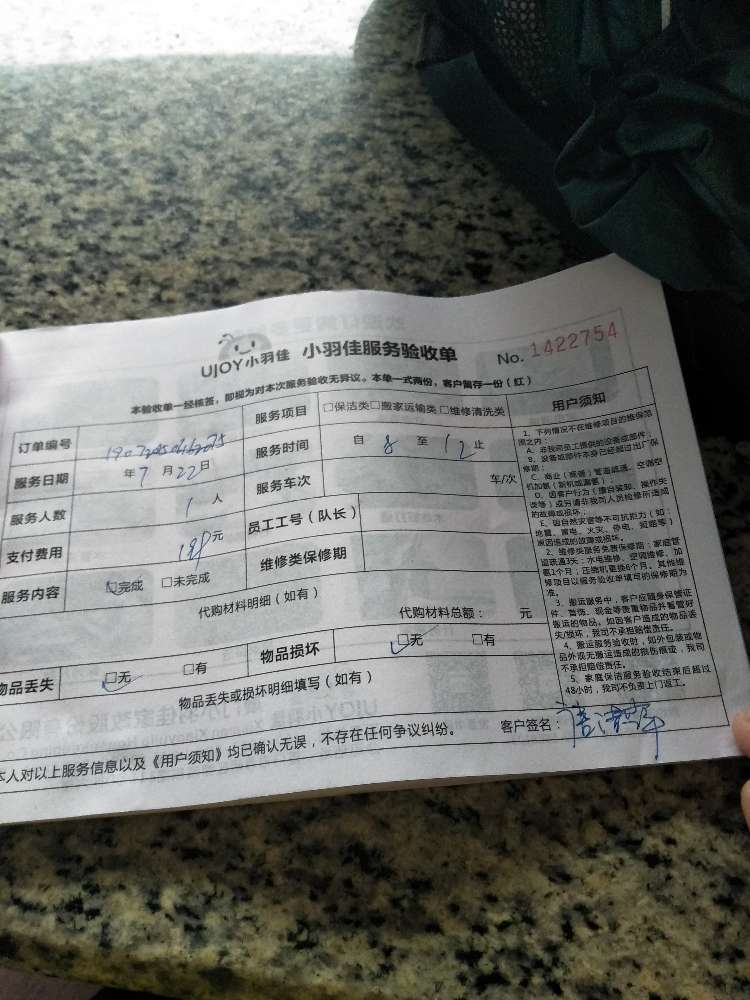 UJOY小羽佳 小羽佳服务验收单 No. 1422754
本验收单一经核签，即视为对本次服务验收无异议。本单一式两份，客户留存一份（红）
订单编号 服务项目 □保洁类□搬家运输类□维修清洗类 用户须知
服务日期 年7月22日 服务时间 自8至12止
服务人数 1人 服务车次 车/次
支付费用 元 员工工号（队长）
服务内容 ☑完成 □未完成 维修类保修期
代购材料明细（如有） 代购材料总额： 元
物品丢失 ☑无 □有 物品损坏 ☑无 □有
物品丢失或损坏明细填写（如有）
本人对以上服务信息以及《用户须知》均已确认无误，不存在任何争议纠纷。 客户签名：
1、下列情况不在维修项目的维保范
围之内：
A、非我司员工提供的设备或部件；
B、设备或部件本身已经超过出厂保
修期；
C、商业（疾善）管道疏通、空调空
机加氨（新机或漏氨）；
D、因客户行为（擅自装卸、操作失
误等）或另请非我司人员检修所造成
的故障或损坏；
E、因自然灾害等不可抗拒力（如：
地震、雷电、火灾、停电、短路等）
原因造成的故障或损坏。
2、维修类服务免费保修期：家庭管
道疏通3天；水电维修、空调维修、加
氨1个月；压缩机更换6个月。其他维
修项目以服务验收单填写的保修期为
准。
3、搬运服务中，客户应随身保管证
件、首饰、现金等贵重物品并看管好
搬运的物品。如因客户造成的物品丢
失/损坏，我司不承担赔偿责任。
4、搬运服务验收时，如外包装或物
品外观无搬运造成的损伤痕迹，我司
不承担赔偿责任。
5、家庭保洁服务验收结束后超过
48小时，我司不负责上门返工。